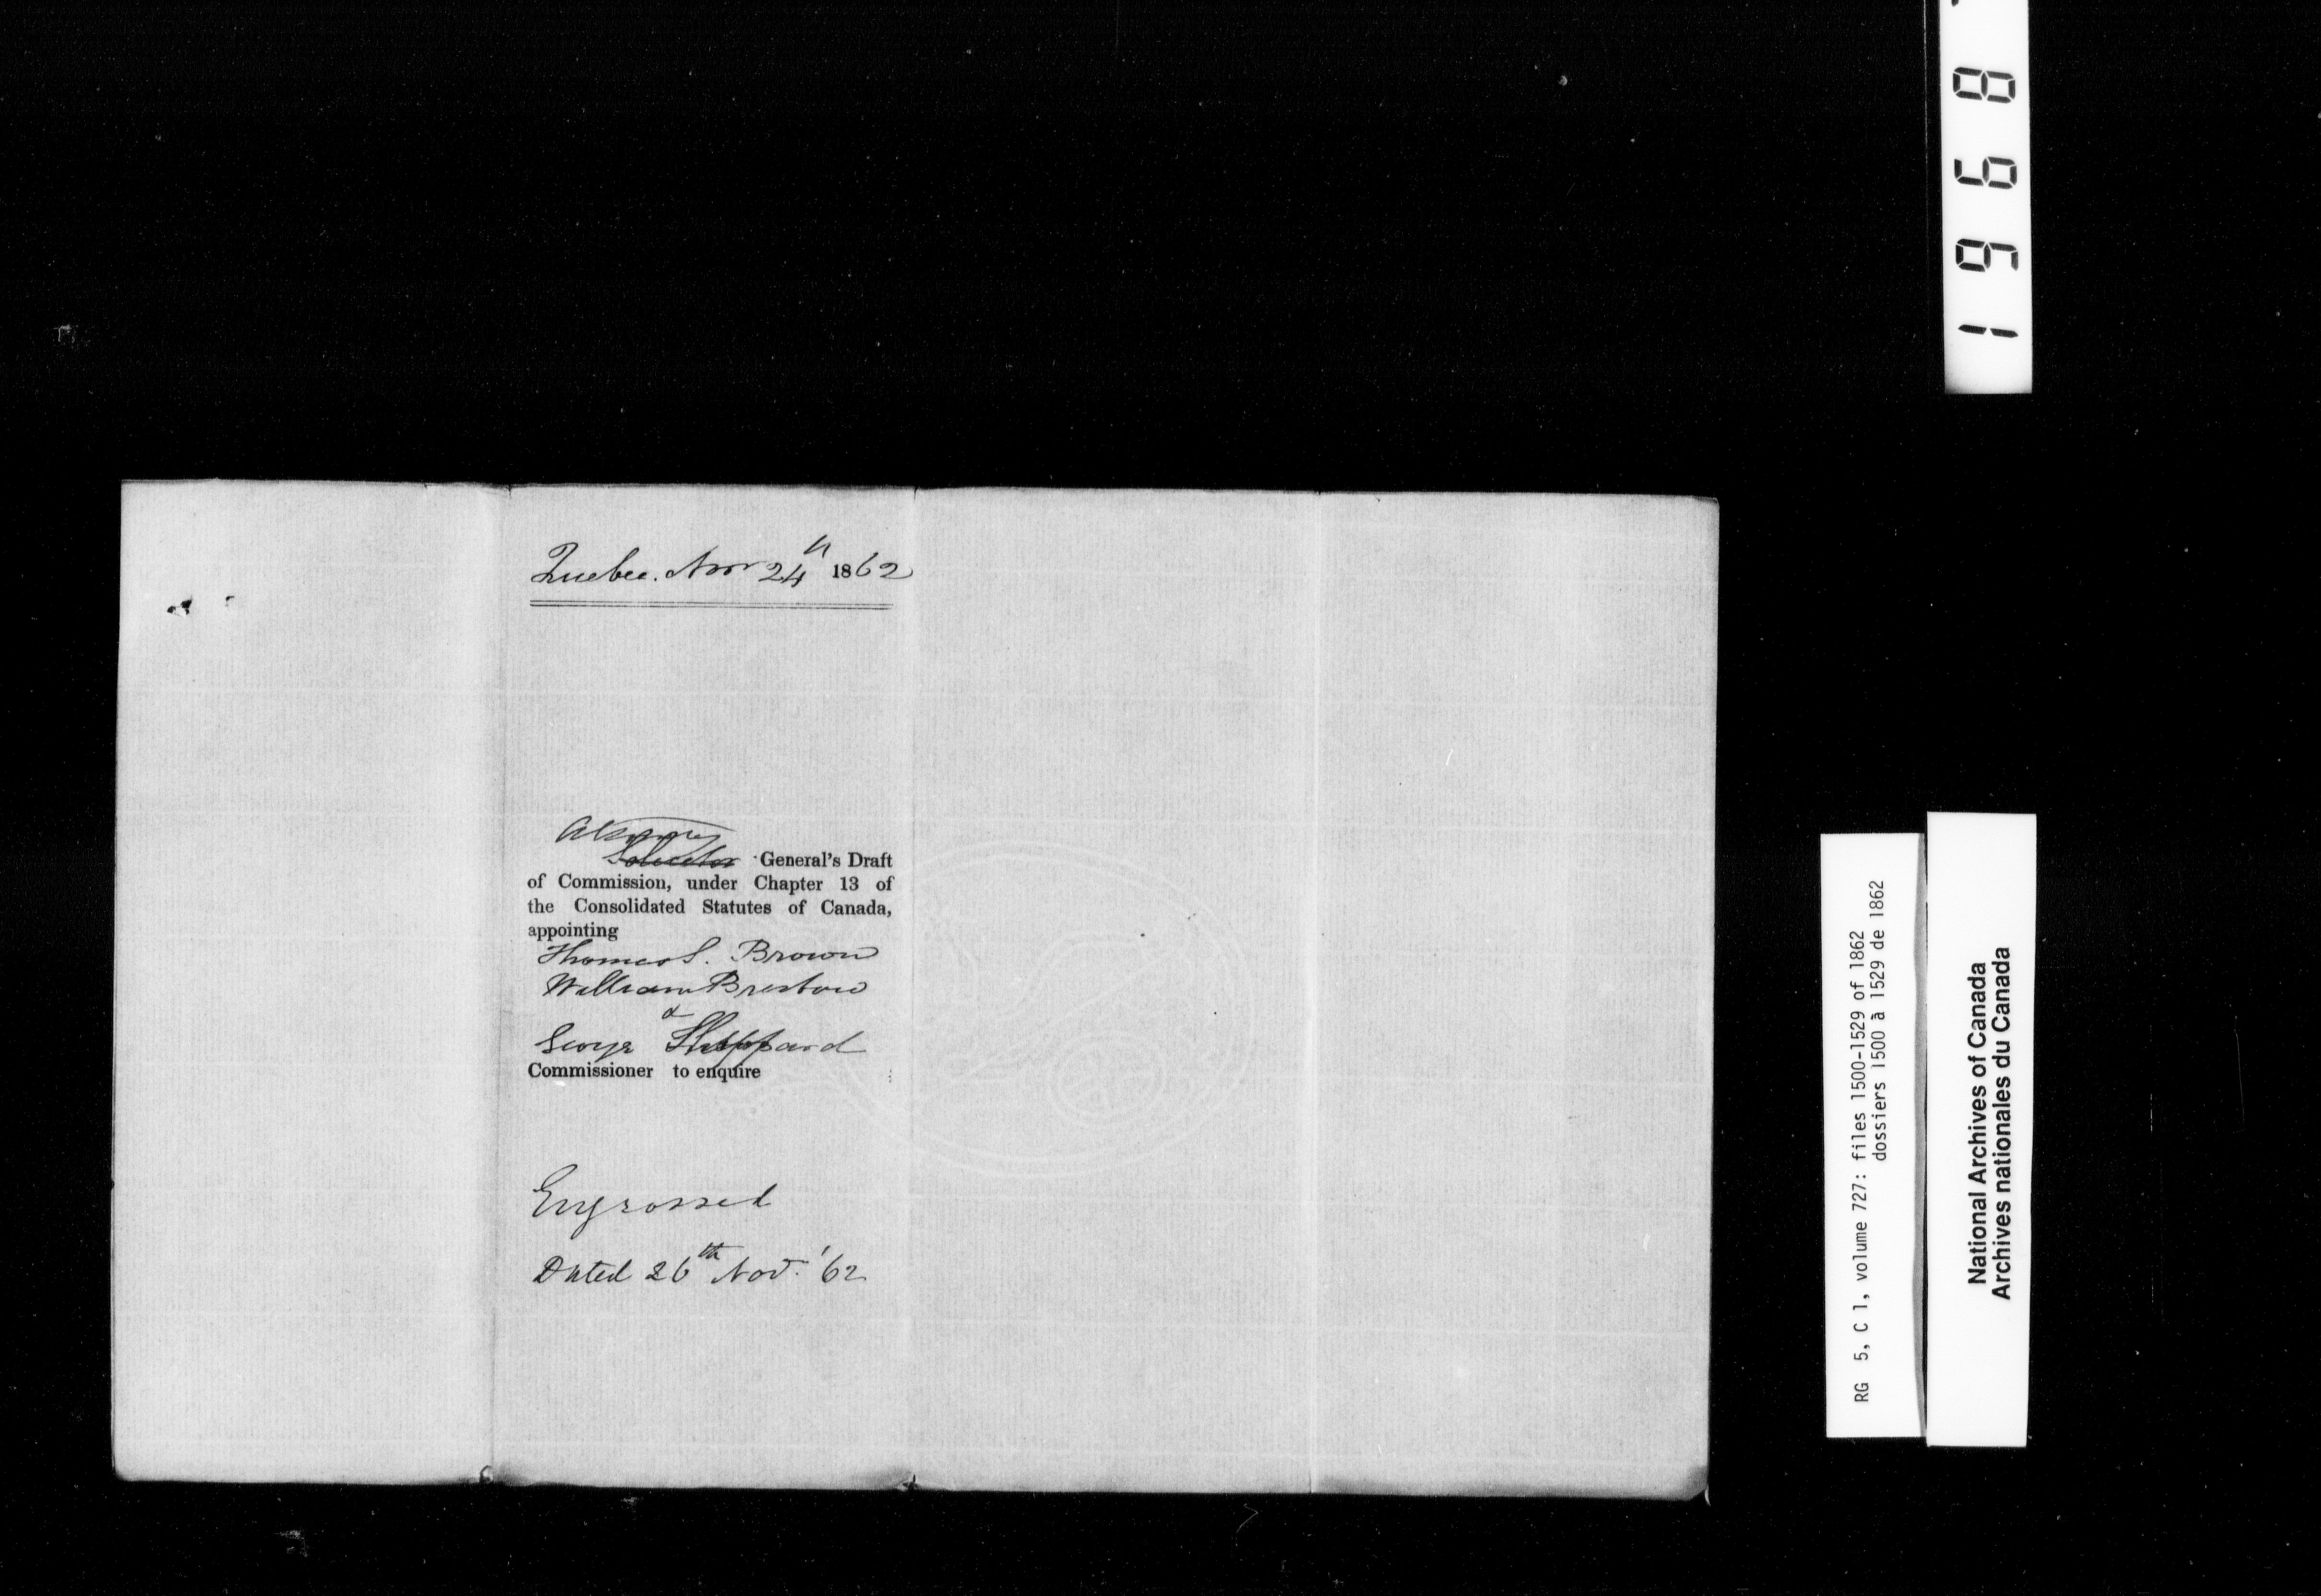 Quebec. Nov 24th 1862
Attorney
Solicitor General's Draft
of Commission, under Chapter 13 of
the Consolidated Statutes of Canada,
appointing
Thomas S. Brown
William Bristow
&
George Sheppard
Commissioner to enquire
Engrossed
Dated 26th Nov. '62
1968
RG 5, C 1, volume 727: files 1500-1529 of 1862
dossiers 1500 à 1529 de 1862
National Archives of Canada
Archives nationales du Canada